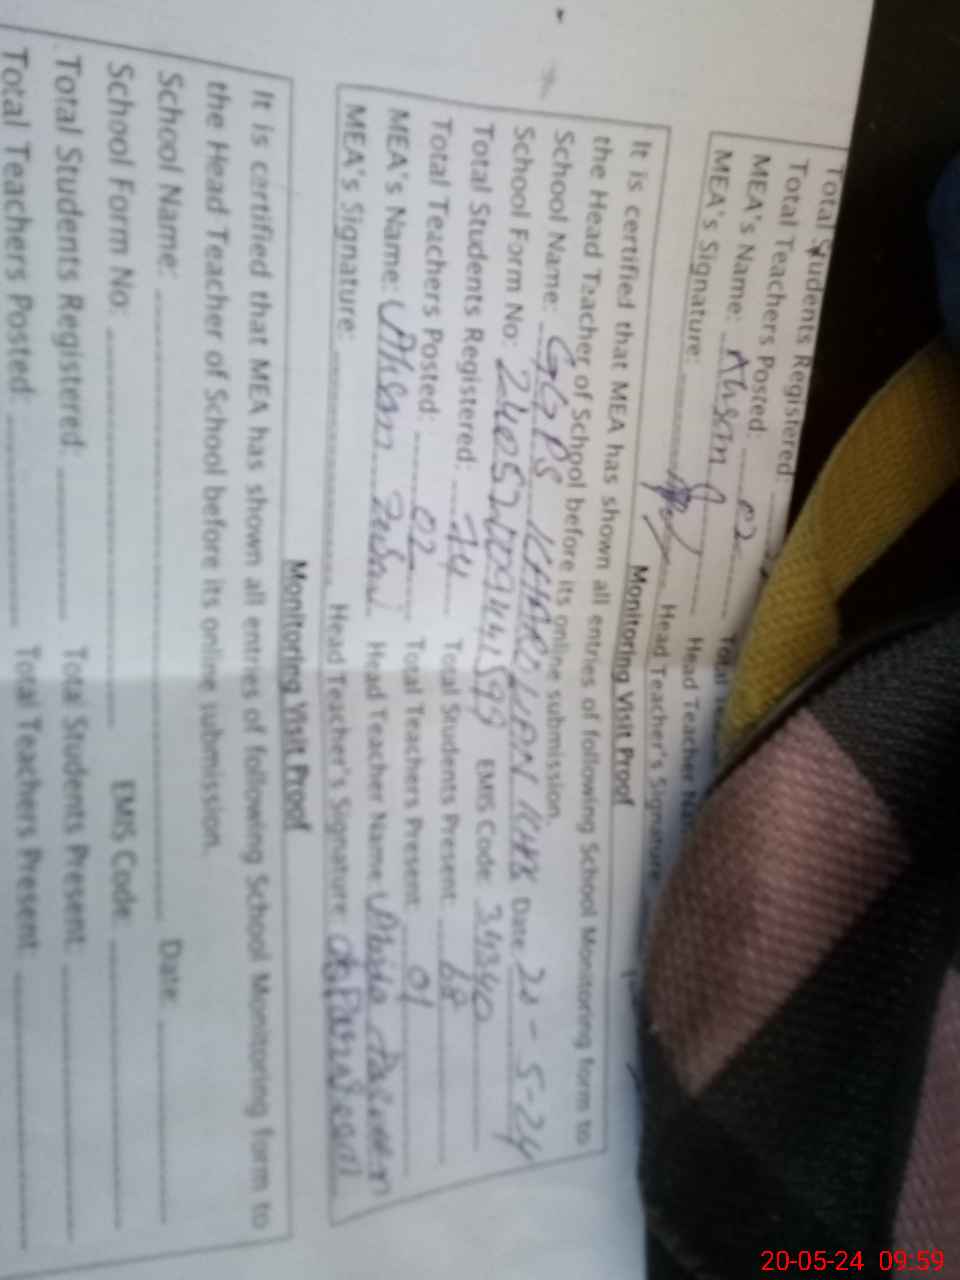 Total Students Registered:
Total Teachers Posted: 02
MEA's Name: Ahsan Head Teacher
MEA's Signature: Head Teacher's Signature
Monitoring Visit Proof
It is certified that MEA has shown all entries of following School Monitoring form to
the Head Teacher of School before its online submission.
School Name: GGPS Date 20-5-24
School Form No: EMIS Code: 34340
Total Students Registered: 74 Total Students Present: 68
Total Teachers Posted: 02 Total Teachers Present: 01
MEA's Name: Ahsan Head Teacher Name
MEA's Signature: Head Teacher's Signature:
Monitoring Visit Proof
It is certified that MEA has shown all entries of following School Monitoring form to
the Head Teacher of School before its online submission.
School Name: Date:
School Form No: EMIS Code:
Total Students Registered: Total Students Present:
Total Teachers Posted: Total Teachers Present:
20-05-24 09:59